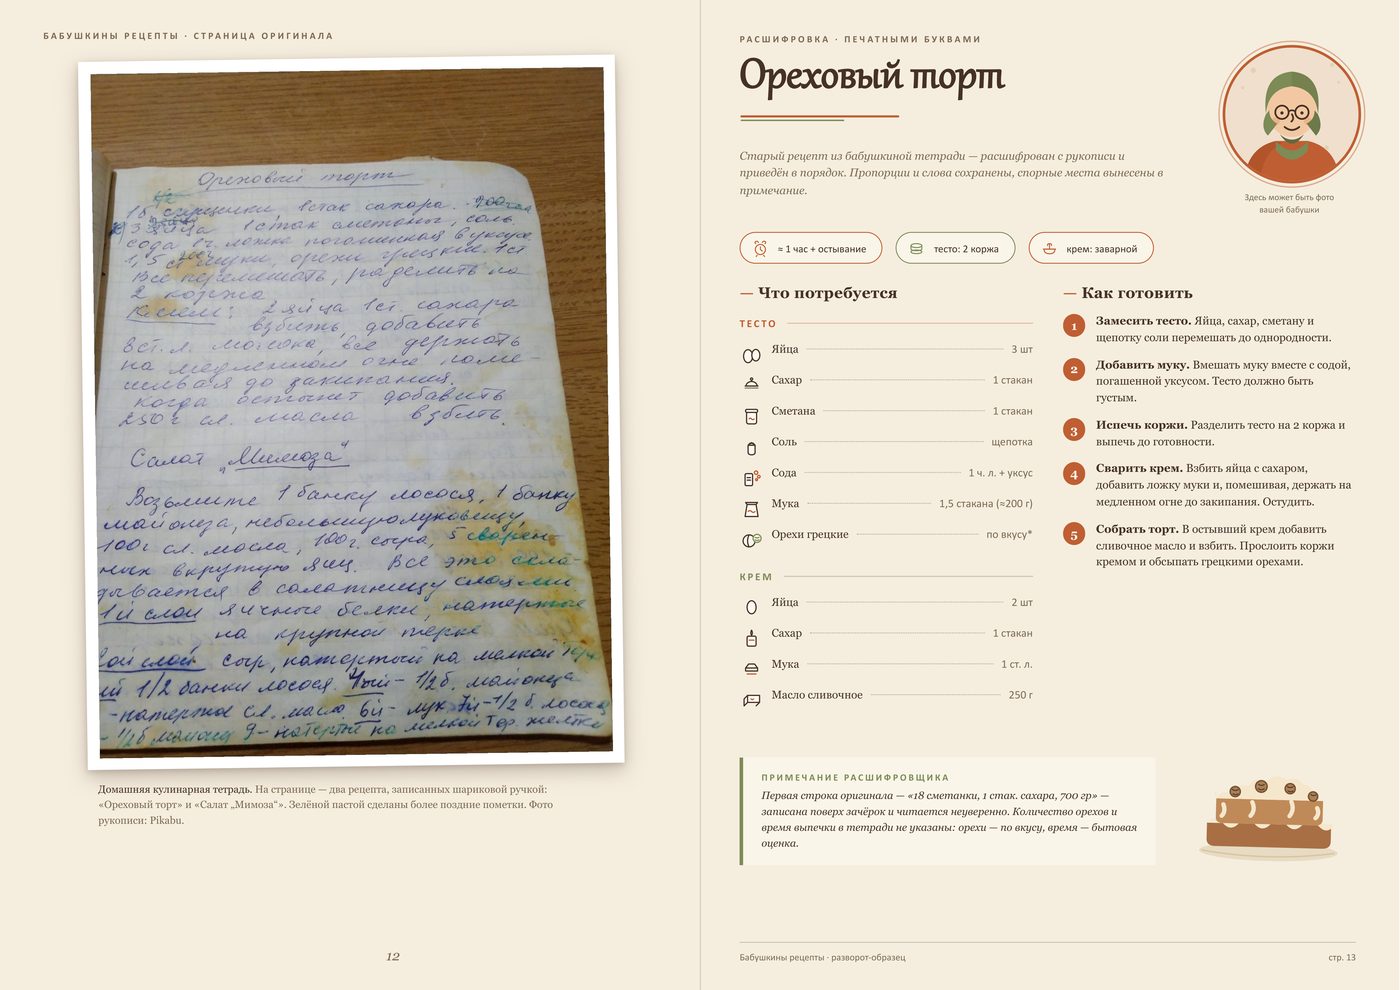 БАБУШКИНЫ РЕЦЕПТЫ · СТРАНИЦА ОРИГИНАЛА
Ореховый торт
1 стак сахара.
3 яйца 1 стак сметаны, соль
сода 1 ч. ложка погашенная в уксусе
1,5 ст муки, орехи грецкие. 1 ст
Все перемешать, разделить на
2 коржа
Крем: 2 яйца 1 ст. сахара
взбить добавить
ст. л. молока, все держать
на медленном огне поме-
шивая до закипания.
когда остынет добавить
250 г сл. масла взбить.
Салат „Мимоза“
Возьмите 1 банку лосося, 1 банку
майонеза, небольшую луковицу,
100 г сл. масла, 100 г. сыра, 5 сварен-
ных вкрутую яиц. Все это скла-
дывается в салатницу слоями
1й слой яичные белки, натертые
на крупной терке
ой слой сыр, натертый на мелкой тер
ий 1/2 банки лосося. 4ый - 1/2 б. майонеза
- натертое сл. масло 6й - лук 7й - 1/2 б. лосося
- 1/2 б майонез 9 - натертой на мелкой тер. желтки
Домашняя кулинарная тетрадь. На странице — два рецепта, записанных шариковой ручкой:
«Ореховый торт» и «Салат „Мимоза“». Зелёной пастой сделаны более поздние пометки. Фото
рукописи: Pikabu.
12
РАСШИФРОВКА · ПЕЧАТНЫМИ БУКВАМИ
Ореховый торт
Старый рецепт из бабушкиной тетради — расшифрован с рукописи и
приведён в порядок. Пропорции и слова сохранены, спорные места вынесены в
примечание.
Здесь может быть фото
вашей бабушки
≈ 1 час + остывание
тесто: 2 коржа
крем: заварной
— Что потребуется
ТЕСТО
Яйца 3 шт
Сахар 1 стакан
Сметана 1 стакан
Соль щепотка
Сода 1 ч. л. + уксус
Мука 1,5 стакана (≈200 г)
Орехи грецкие по вкусу*
КРЕМ
Яйца 2 шт
Сахар 1 стакан
Мука 1 ст. л.
Масло сливочное 250 г
— Как готовить
1 Замесить тесто. Яйца, сахар, сметану и
щепотку соли перемешать до однородности.
2 Добавить муку. Вмешать муку вместе с содой,
погашенной уксусом. Тесто должно быть
густым.
3 Испечь коржи. Разделить тесто на 2 коржа и
выпечь до готовности.
4 Сварить крем. Взбить яйца с сахаром,
добавить ложку муки и, помешивая, держать на
медленном огне до закипания. Остудить.
5 Собрать торт. В остывший крем добавить
сливочное масло и взбить. Прослоить коржи
кремом и обсыпать грецкими орехами.
ПРИМЕЧАНИЕ РАСШИФРОВЩИКА
Первая строка оригинала — «18 сметанки, 1 стак. сахара, 700 гр» —
записана поверх зачёрок и читается неуверенно. Количество орехов и
время выпечки в тетради не указаны: орехи — по вкусу, время — бытовая
оценка.
Бабушкины рецепты · разворот-образец
стр. 13